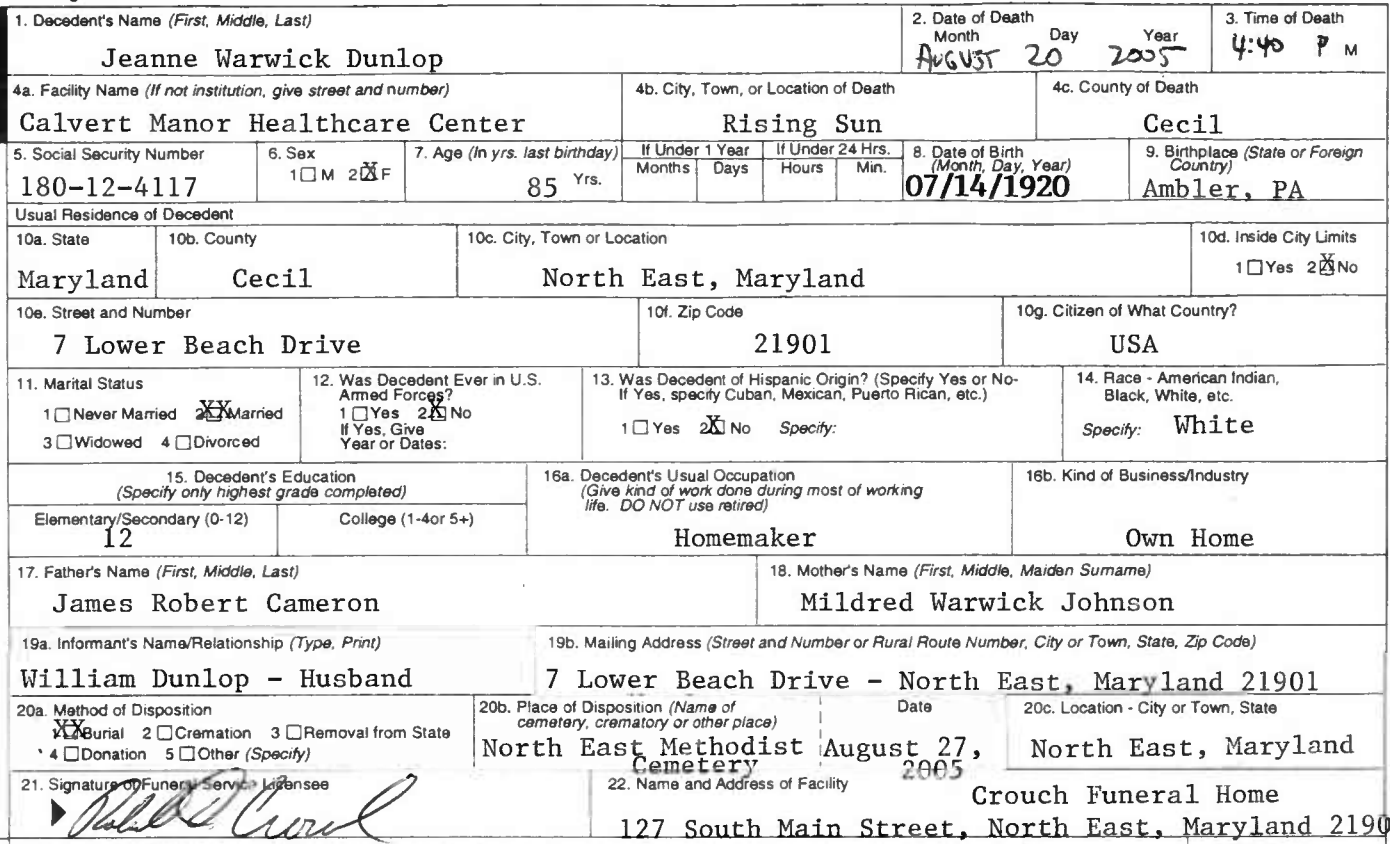 1. Decedent's Name (First, Middle, Last)
Jeanne Warwick Dunlop
2. Date of Death
Month Day Year
AUGUST 20 2005
3. Time of Death
4:40 P M
4a. Facility Name (If not institution, give street and number)
Calvert Manor Healthcare Center
4b. City, Town, or Location of Death
Rising Sun
4c. County of Death
Cecil
5. Social Security Number
180-12-4117
6. Sex
1 ☐ M 2 ☒ F
7. Age (In yrs. last birthday)
85 Yrs.
If Under 1 Year
Months Days
If Under 24 Hrs.
Hours Min.
8. Date of Birth
(Month, Day, Year)
07/14/1920
9. Birthplace (State or Foreign
Country)
Ambler, PA
Usual Residence of Decedent
10a. State
Maryland
10b. County
Cecil
10c. City, Town or Location
North East, Maryland
10d. Inside City Limits
1 ☐ Yes 2 ☒ No
10e. Street and Number
7 Lower Beach Drive
10f. Zip Code
21901
10g. Citizen of What Country?
USA
11. Marital Status
1 ☐ Never Married 2 XX Married
3 ☐ Widowed 4 ☐ Divorced
12. Was Decedent Ever in U.S.
Armed Forces?
1 ☐ Yes 2 ☒ No
If Yes, Give
Year or Dates:
13. Was Decedent of Hispanic Origin? (Specify Yes or No-
If Yes, specify Cuban, Mexican, Puerto Rican, etc.)
1 ☐ Yes 2 ☒ No Specify:
14. Race - American Indian,
Black, White, etc.
Specify: White
15. Decedent's Education
(Specify only highest grade completed)
Elementary/Secondary (0-12) College (1-4or 5+)
12
16a. Decedent's Usual Occupation
(Give kind of work done during most of working
life. DO NOT use retired)
Homemaker
16b. Kind of Business/Industry
Own Home
17. Father's Name (First, Middle, Last)
James Robert Cameron
18. Mother's Name (First, Middle, Maiden Surname)
Mildred Warwick Johnson
19a. Informant's Name/Relationship (Type, Print)
William Dunlop - Husband
19b. Mailing Address (Street and Number or Rural Route Number, City or Town, State, Zip Code)
7 Lower Beach Drive - North East, Maryland 21901
20a. Method of Disposition
1 XX Burial 2 ☐ Cremation 3 ☐ Removal from State
4 ☐ Donation 5 ☐ Other (Specify)
20b. Place of Disposition (Name of
cemetery, crematory or other place)
North East Methodist
Cemetery
Date
August 27,
2005
20c. Location - City or Town, State
North East, Maryland
21. Signature of Funeral Service Licensee
22. Name and Address of Facility
Crouch Funeral Home
127 South Main Street, North East, Maryland 2190